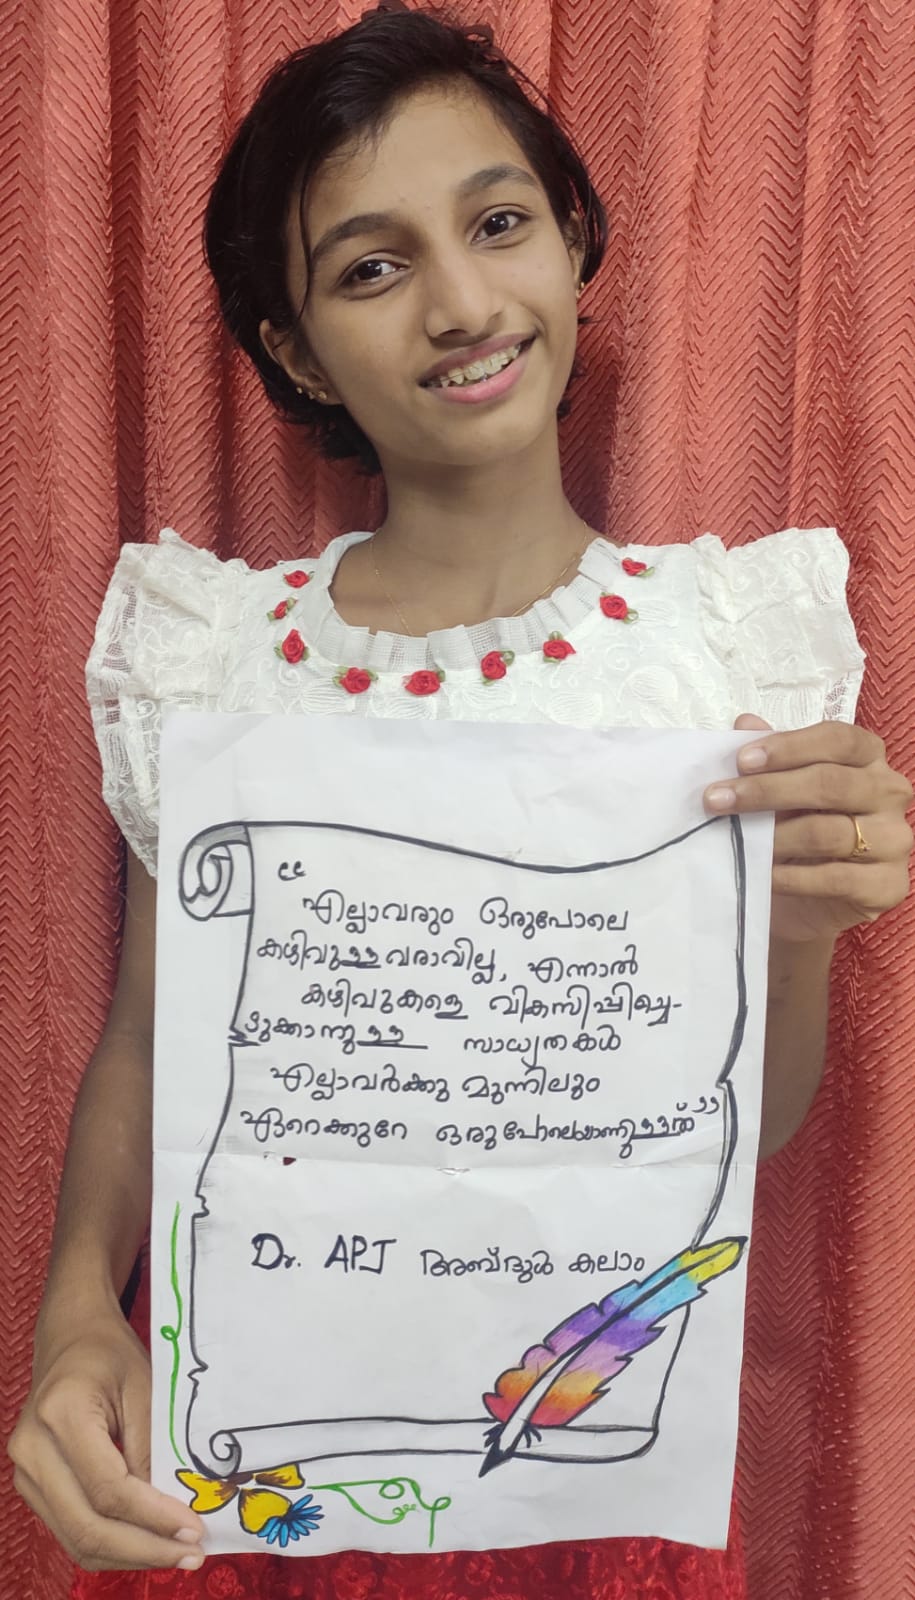 “
എല്ലാവരും ഒരുപോലെ
കഴിവുള്ളവരാവില്ല, എന്നാൽ
കഴിവുകളെ വികസിപ്പിച്ചെ-
ടുക്കാനുള്ള സാധ്യതകൾ
എല്ലാവർക്കു മുന്നിലും
ഏറെക്കുറേ ഒരുപോലെയാണുള്ളത്”
Dr. APJ അബ്ദുൾ കലാം